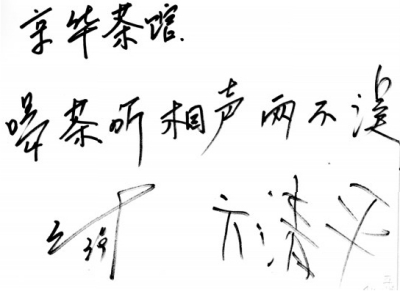 京华茶馆.
喝茶听相声两不误
方清平